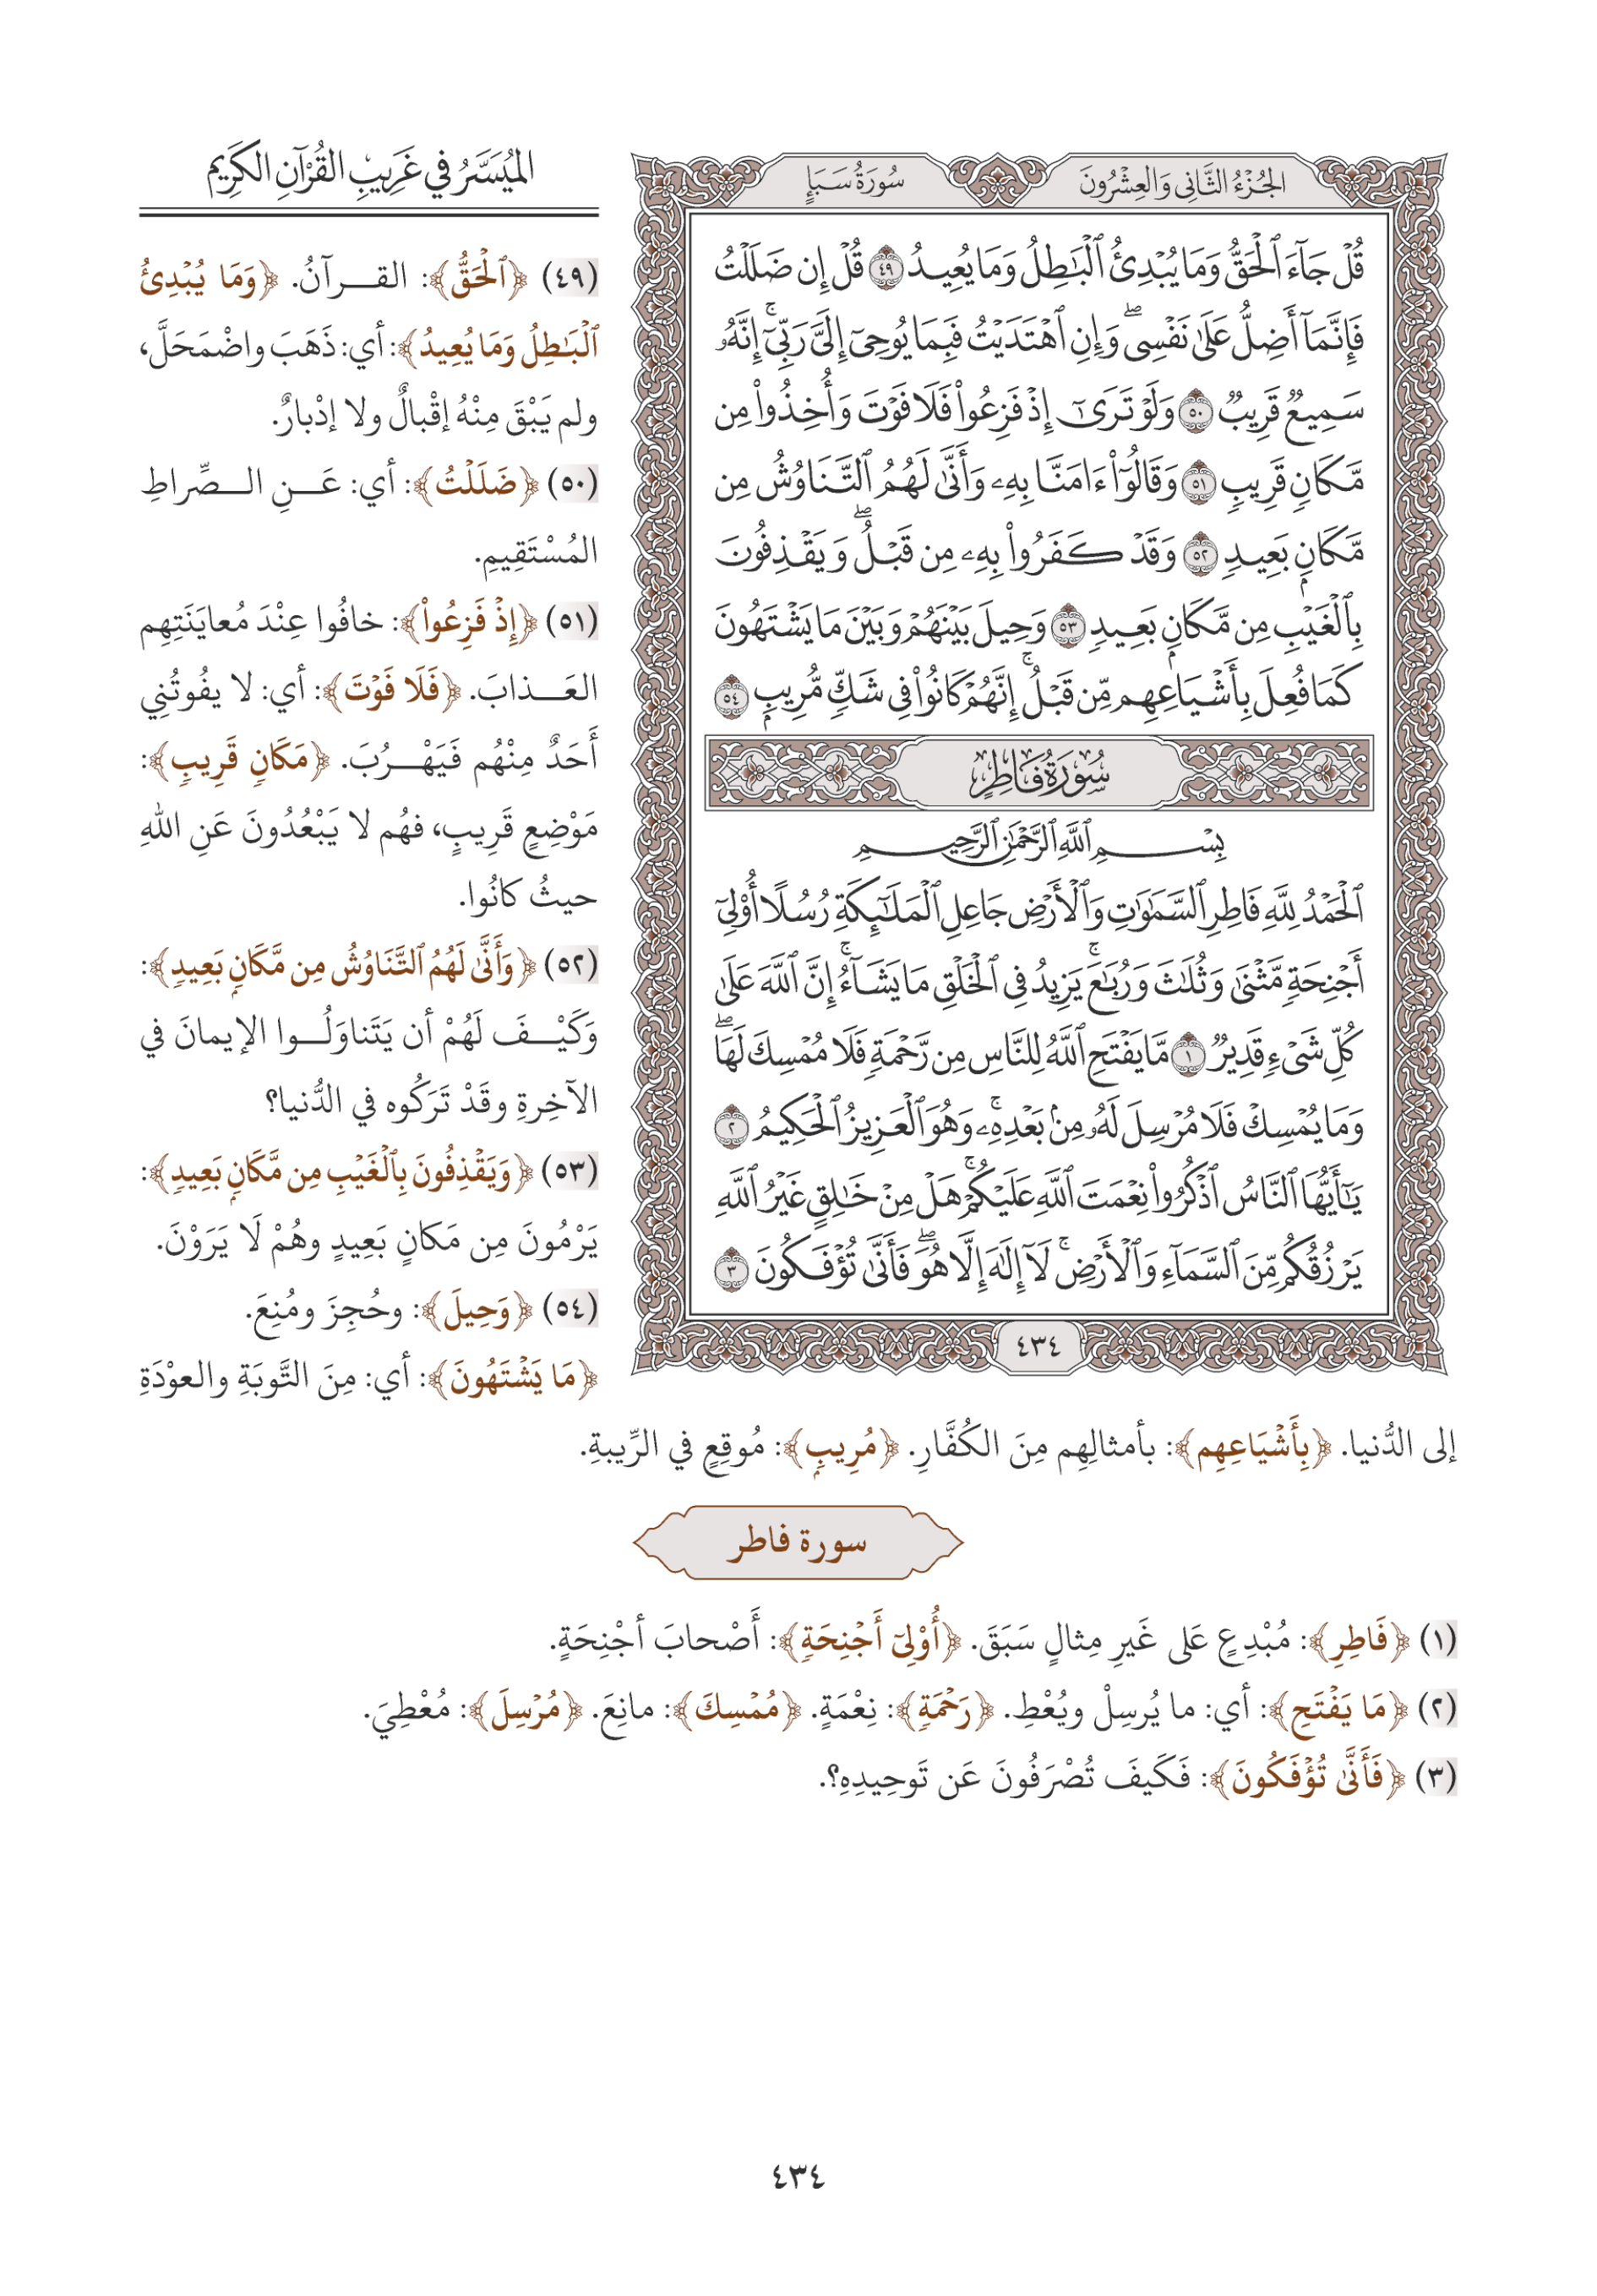 الجُزْءُ الثَّانِي وَالعِشْرُونَ
سُورَةُ سَبَإٍ
قُلۡ جَآءَ ٱلۡحَقُّ وَمَا يُبۡدِئُ ٱلۡبَٰطِلُ وَمَا يُعِيدُ ٤٩ قُلۡ إِن ضَلَلۡتُ
فَإِنَّمَآ أَضِلُّ عَلَىٰ نَفۡسِيۖ وَإِنِ ٱهۡتَدَيۡتُ فَبِمَا يُوحِيٓ إِلَيَّ رَبِّيٓۚ إِنَّهُۥ
سَمِيعٞ قَرِيبٞ ٥٠ وَلَوۡ تَرَىٰٓ إِذۡ فَزِعُواْ فَلَا فَوۡتَ وَأُخِذُواْ مِن
مَّكَانٖ قَرِيبٖ ٥١ وَقَالُوٓاْ ءَامَنَّا بِهِۦ وَأَنَّىٰ لَهُمُ ٱلتَّنَاوُشُ مِن
مَّكَانِۭ بَعِيدٖ ٥٢ وَقَدۡ كَفَرُواْ بِهِۦ مِن قَبۡلُۖ وَيَقۡذِفُونَ
بِٱلۡغَيۡبِ مِن مَّكَانِۭ بَعِيدٖ ٥٣ وَحِيلَ بَيۡنَهُمۡ وَبَيۡنَ مَا يَشۡتَهُونَ
كَمَا فُعِلَ بِأَشۡيَاعِهِم مِّن قَبۡلُۚ إِنَّهُمۡ كَانُواْ فِي شَكّٖ مُّرِيبِۭ ٥٤
سُورَةُ فَاطِرٍ
بِسۡمِ ٱللَّهِ ٱلرَّحۡمَٰنِ ٱلرَّحِيمِ
ٱلۡحَمۡدُ لِلَّهِ فَاطِرِ ٱلسَّمَٰوَٰتِ وَٱلۡأَرۡضِ جَاعِلِ ٱلۡمَلَٰٓئِكَةِ رُسُلًا أُوْلِيٓ
أَجۡنِحَةٖ مَّثۡنَىٰ وَثُلَٰثَ وَرُبَٰعَۚ يَزِيدُ فِي ٱلۡخَلۡقِ مَا يَشَآءُۚ إِنَّ ٱللَّهَ عَلَىٰ
كُلِّ شَيۡءٖ قَدِيرٞ ١ مَّا يَفۡتَحِ ٱللَّهُ لِلنَّاسِ مِن رَّحۡمَةٖ فَلَا مُمۡسِكَ لَهَاۖ
وَمَا يُمۡسِكۡ فَلَا مُرۡسِلَ لَهُۥ مِنۢ بَعۡدِهِۦۚ وَهُوَ ٱلۡعَزِيزُ ٱلۡحَكِيمُ ٢
يَٰٓأَيُّهَا ٱلنَّاسُ ٱذۡكُرُواْ نِعۡمَتَ ٱللَّهِ عَلَيۡكُمۡۚ هَلۡ مِنۡ خَٰلِقٍ غَيۡرُ ٱللَّهِ
يَرۡزُقُكُم مِّنَ ٱلسَّمَآءِ وَٱلۡأَرۡضِۚ لَآ إِلَٰهَ إِلَّا هُوَۖ فَأَنَّىٰ تُؤۡفَكُونَ ٣
٤٣٤
المُيَسَّرُ في غَرِيبِ القُرْآنِ الكَرِيم
(٤٩) ﴿ٱلۡحَقُّ﴾: القـرآنُ. ﴿وَمَا يُبۡدِئُ
ٱلۡبَٰطِلُ وَمَا يُعِيدُ﴾: أي: ذَهَبَ واضْمَحَلَّ،
ولم يَبْقَ مِنْهُ إقْبالٌ ولا إدْبارٌ.
(٥٠) ﴿ضَلَلۡتُ﴾: أي: عَـنِ الـصِّراطِ
المُسْتَقِيمِ.
(٥١) ﴿إِذۡ فَزِعُواْ﴾: خافُوا عِنْدَ مُعايَنَتِهِم
العَـذابَ. ﴿فَلَا فَوۡتَ﴾: أي: لا يفُوتُنِي
أَحَدٌ مِنْهُم فَيَهْـرُبَ. ﴿مَكَانٖ قَرِيبٖ﴾:
مَوْضِعٍ قَرِيبٍ، فهُم لا يَبْعُدُونَ عَنِ اللهِ
حيثُ كانُوا.
(٥٢) ﴿وَأَنَّىٰ لَهُمُ ٱلتَّنَاوُشُ مِن مَّكَانِۭ بَعِيدٖ﴾:
وَكَيْـفَ لَهُمْ أن يَتَناوَلُـوا الإيمانَ في
الآخِرةِ وقَدْ تَرَكُوه في الدُّنيا؟
(٥٣) ﴿وَيَقۡذِفُونَ بِٱلۡغَيۡبِ مِن مَّكَانِۭ بَعِيدٖ﴾:
يَرْمُونَ مِن مَكانٍ بَعِيدٍ وهُمْ لَا يَرَوْنَ.
(٥٤) ﴿وَحِيلَ﴾: وحُجِزَ ومُنِعَ.
﴿مَا يَشۡتَهُونَ﴾: أي: مِنَ التَّوبَةِ والعوْدَةِ
إلى الدُّنيا. ﴿بِأَشۡيَاعِهِم﴾: بأمثالِهِم مِنَ الكُفَّارِ. ﴿مُرِيبِۭ﴾: مُوقِعٍ في الرِّيبةِ.
سورة فاطر
(١) ﴿فَاطِرِ﴾: مُبْدِعٍ عَلى غَيرِ مِثالٍ سَبَقَ. ﴿أُوْلِيٓ أَجۡنِحَةٖ﴾: أَصْحابَ أجْنِحَةٍ.
(٢) ﴿مَا يَفۡتَحِ﴾: أي: ما يُرسِلْ ويُعْطِ. ﴿رَحۡمَةٖ﴾: نِعْمَةٍ. ﴿مُمۡسِكَ﴾: مانِعَ. ﴿مُرۡسِلَ﴾: مُعْطِيَ.
(٣) ﴿فَأَنَّىٰ تُؤۡفَكُونَ﴾: فَكَيفَ تُصْرَفُونَ عَن تَوحِيدِهِ؟.
٤٣٤